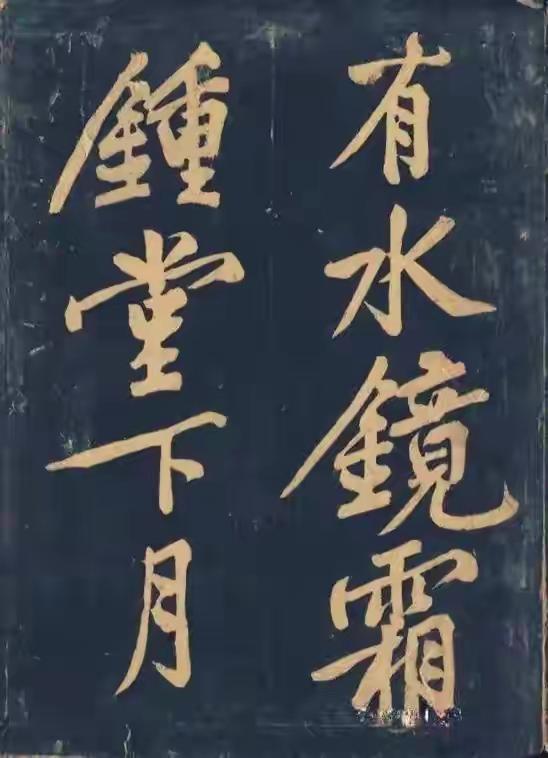 有水鏡霜
鍾堂下月